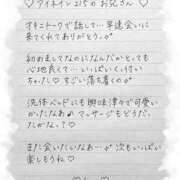 ♡アイネイン215のお兄さん♡
オキニトークで話して…早速会いに
来てくれてありがとう♂
初めましてなのになんだかとても
心地良くて…いっぱいくっ付い
ちゃった♡すごい落ち着くの♡
洗体ベッドにも興味津々で可愛い
かったなぁ♪マッサージもどうだっ
たかなぁ？♡
また会いたいなぁ…♂次もいっぱい
楽しもうね♡